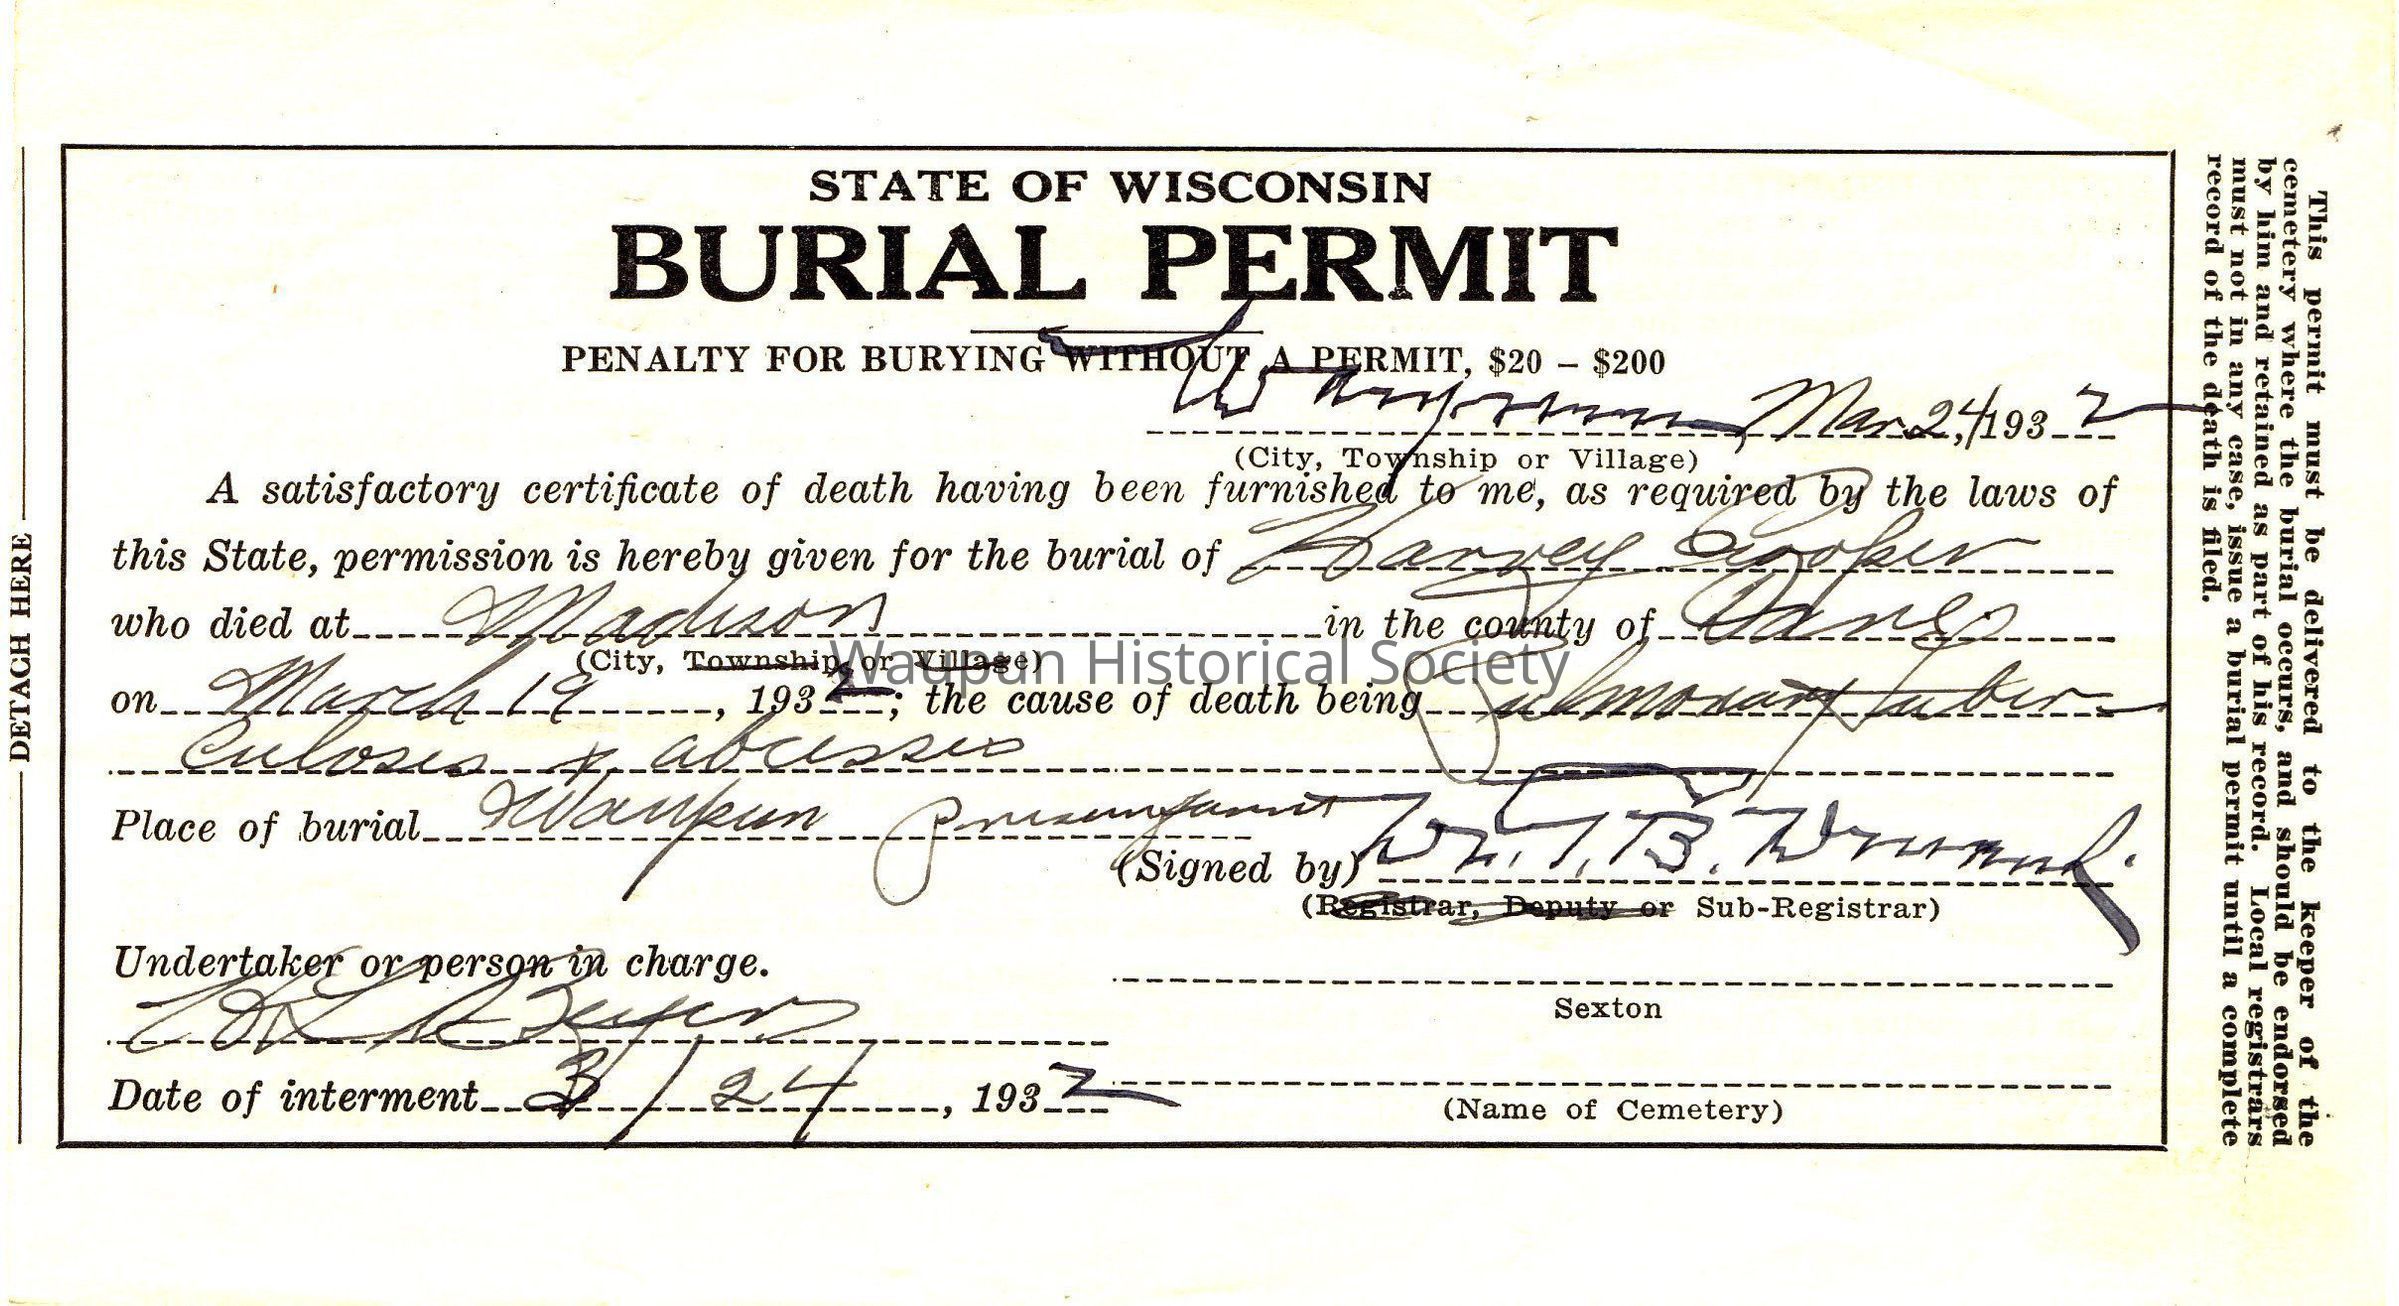 STATE OF WISCONSIN
BURIAL PERMIT
PENALTY FOR BURYING WITHOUT A PERMIT, $20 – $200
Waupun, Mar. 24, 1932
(City, Township or Village)
A satisfactory certificate of death having been furnished to me, as required by the laws of
this State, permission is hereby given for the burial of Harvey
who died at Madison in the county of Dane
(City, Township or Village)
on March 19, 1932; the cause of death being Pulmonary Tuber-
culosis & abcesses
Place of burial Waupun
(Signed by)
(Registrar, Deputy or Sub-Registrar)
Undertaker or person in charge.
Sexton
Date of interment 3/24, 1932
(Name of Cemetery)
DETACH HERE
This permit must be delivered to the keeper of the
cemetery where the burial occurs, and should be endorsed
by him and retained as part of his record. Local registrars
must not in any case, issue a burial permit until a complete
record of the death is filed.
Waupun Historical Society